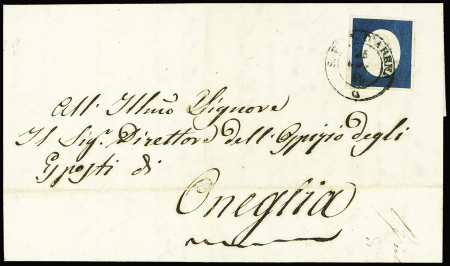 S. PIER D'ARENA
All' Illmo Signore
Il Sigr. Direttore dell'Ospizio degli
Esposti di
Oneglia